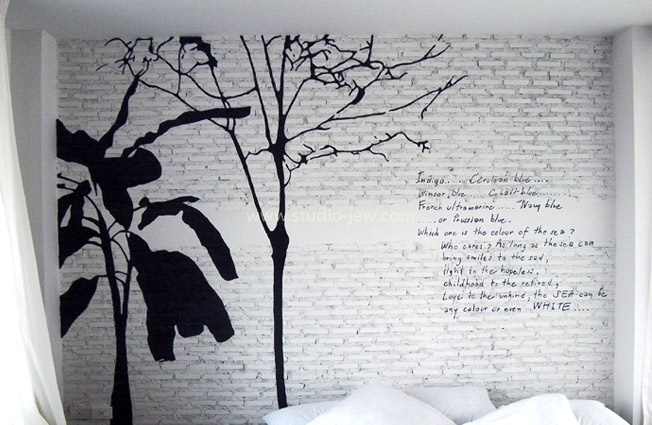 Indigo..... Cerulean blue....
Winsor blue..... Cobalt blue........
French ultramarine..... Navy blue
..or Prussian blue.
Which one is the colour of the sea?
Who cares? As long as the sea can
bring smiles to the sad,
light to the hopeless,
childhood to the retired,
Love to the unkind, the SEA can be
any colour or even WHITE....
www.studio-jew.com